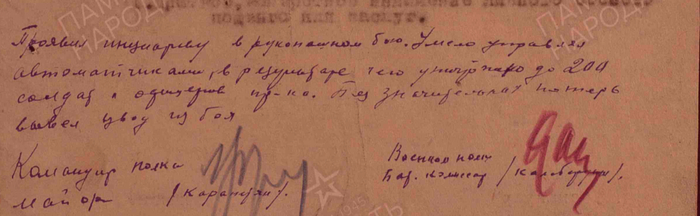 подвиг или заслуг.
Проявил инициативу в рукопашном бою. Умело управлял
автоматчиками, в результате чего уничтожено до 200
солдат и офицеров пр-ка. Без значительных потерь
вывел взвод из боя
Командир полка Военком полка
майор Бат. комиссар
ПАМЯТЬ
НАРОДА